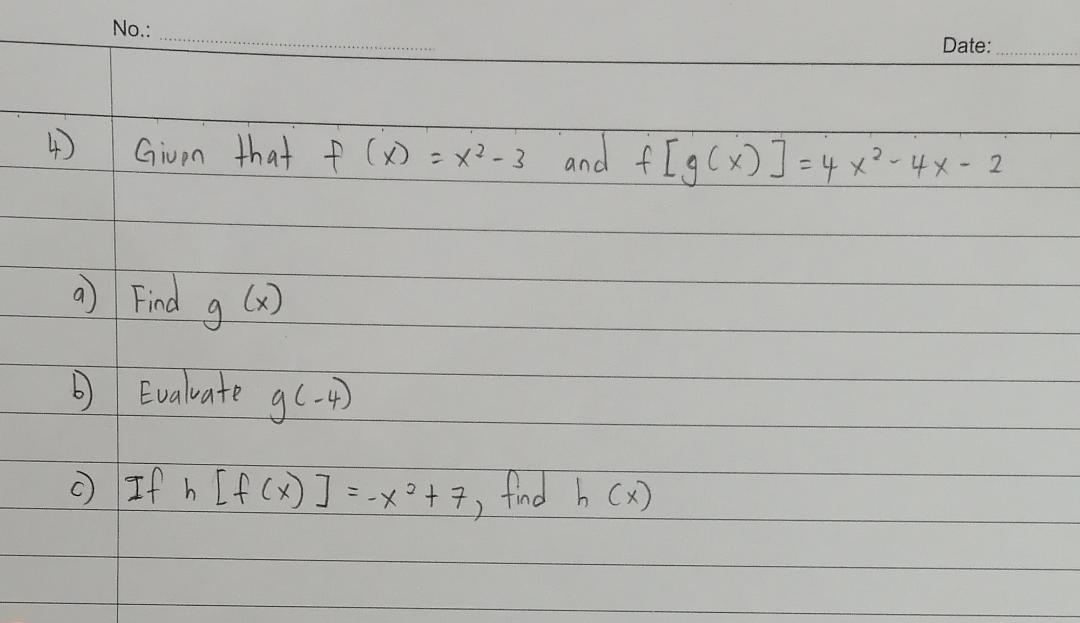 No.:
Date:
4) Given that f (x) = x² - 3 and f [g(x)] = 4x² - 4x - 2
a) Find g (x)
b) Evaluate g(-4)
c) If h [f(x)] = -x² + 7, find h (x)